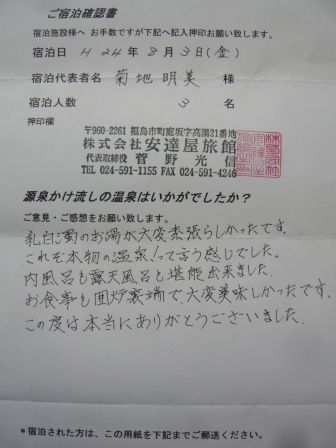 ご宿泊確認書
宿泊施設様へ お手数ですが下記へ記入押印お願い致します。
宿泊日 H24年8月3日(金)
宿泊代表者名 菊地明美 様
宿泊人数 3 名
押印欄
〒960-2261 福島市町庭坂字高湯21番地
株式会社 安達屋旅館
代表取締役 菅野光信
TEL 024-591-1155 FAX 024-591-4246
源泉かけ流しの温泉はいかがでしたか?
ご意見・ご感想をお願い致します。
乳白濁のお湯が大変素張らしかったです。
これぞ本物の温泉!って言う感じでした。
内風呂も露天風呂も堪能出来ました。
お食事も囲炉裏端で大変美味しかったです、
この度は本当にありがとうございました.
*宿泊された方は、この用紙を下記までご郵送ください。